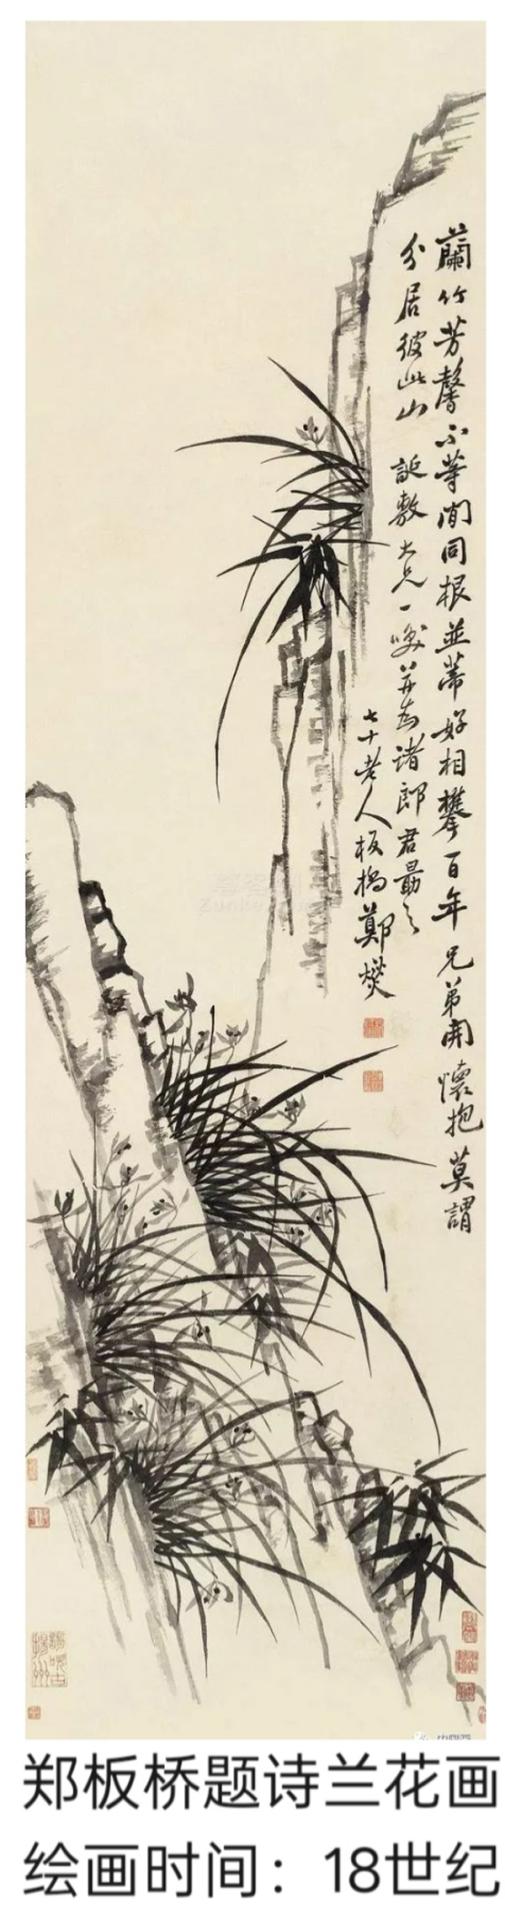 蘭竹芳馨不等閒同根並蒂好相攀百年兄弟開懷抱莫謂
分居彼此山 誕敷大兄一咲并為諸郎君勗之
七十老人板橋鄭燮
郑板桥题诗兰花画
绘画时间：18世纪